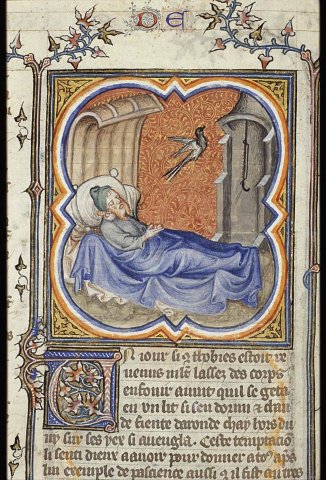 DE
Un iour si q̄ thobies estoit re
uenus mlt̄ lassez des corps
enfouir auint quil se geta
en vn lit si sen dormi et
de fiente daronde chay lors du
ny sur ses yex si aueugla. Ceste temptacion
li senti dieu a auoir pour donner a to⁹ apꝰ
lui exemple de pascience aussi q̄ il fist au tres